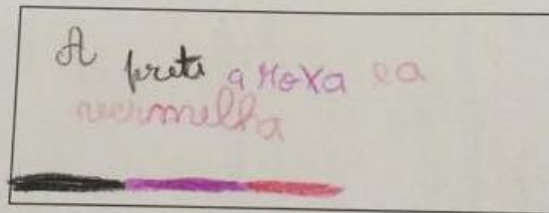 A preta a roxa e a
vermelha